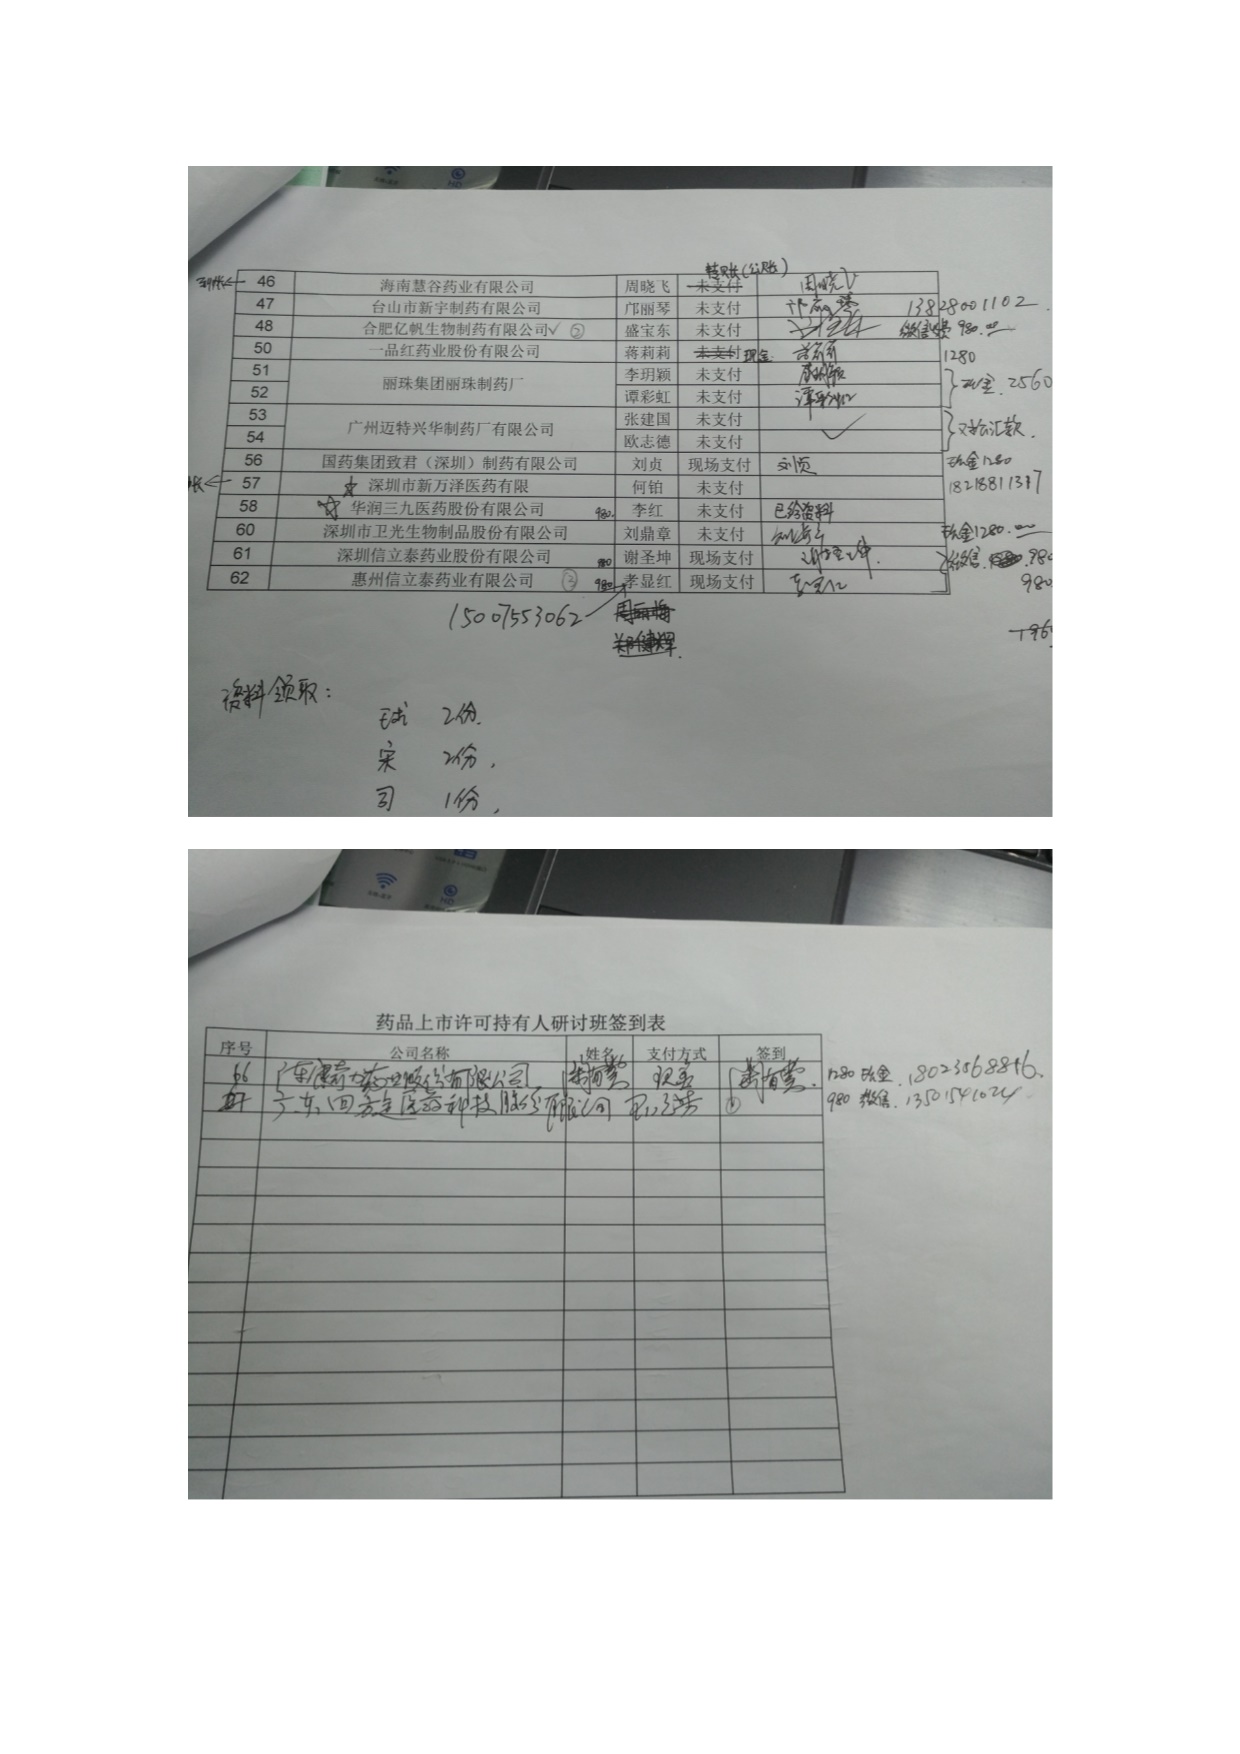 转账(公账)
到账← 46 海南慧谷药业有限公司 周晓飞 未支付 周晓飞
47 台山市新宇制药有限公司 邝丽琴 未支付 邝丽琴 13828001102.
48 合肥亿帆生物制药有限公司✓ ② 盛宝东 未支付 微信 980.00
50 一品红药业股份有限公司 蒋莉莉 未支付 现金 1280
51 丽珠集团丽珠制药厂 李玥颖 未支付 现金. 2560
52 谭彩虹 未支付 谭彩虹
53 广州迈特兴华制药厂有限公司 张建国 未支付 汇款.
54 欧志德 未支付 ✓
56 国药集团致君（深圳）制药有限公司 刘贞 现场支付 刘贞 现金1280
账← 57 ☆ 深圳市新万泽医药有限 何铂 未支付 18218811317
58 ☆ 华润三九医药股份有限公司 980. 李红 未支付 已给资料
60 深圳市卫光生物制品股份有限公司 刘鼎章 未支付 现金1280.00
61 深圳信立泰药业股份有限公司 980 谢圣坤 现场支付 谢圣坤. 微信. 980
62 惠州信立泰药业有限公司 ③ 980. 李显红 现场支付 980
15007553062
196
资料领取：
2份.
宋 2份，
司 1份，
药品上市许可持有人研讨班签到表
序号 公司名称 姓名 支付方式 签到
66 现金 1280 现金. 18023568816.
广东 医药科技股份有限公司 ① 980 微信. 13501541024